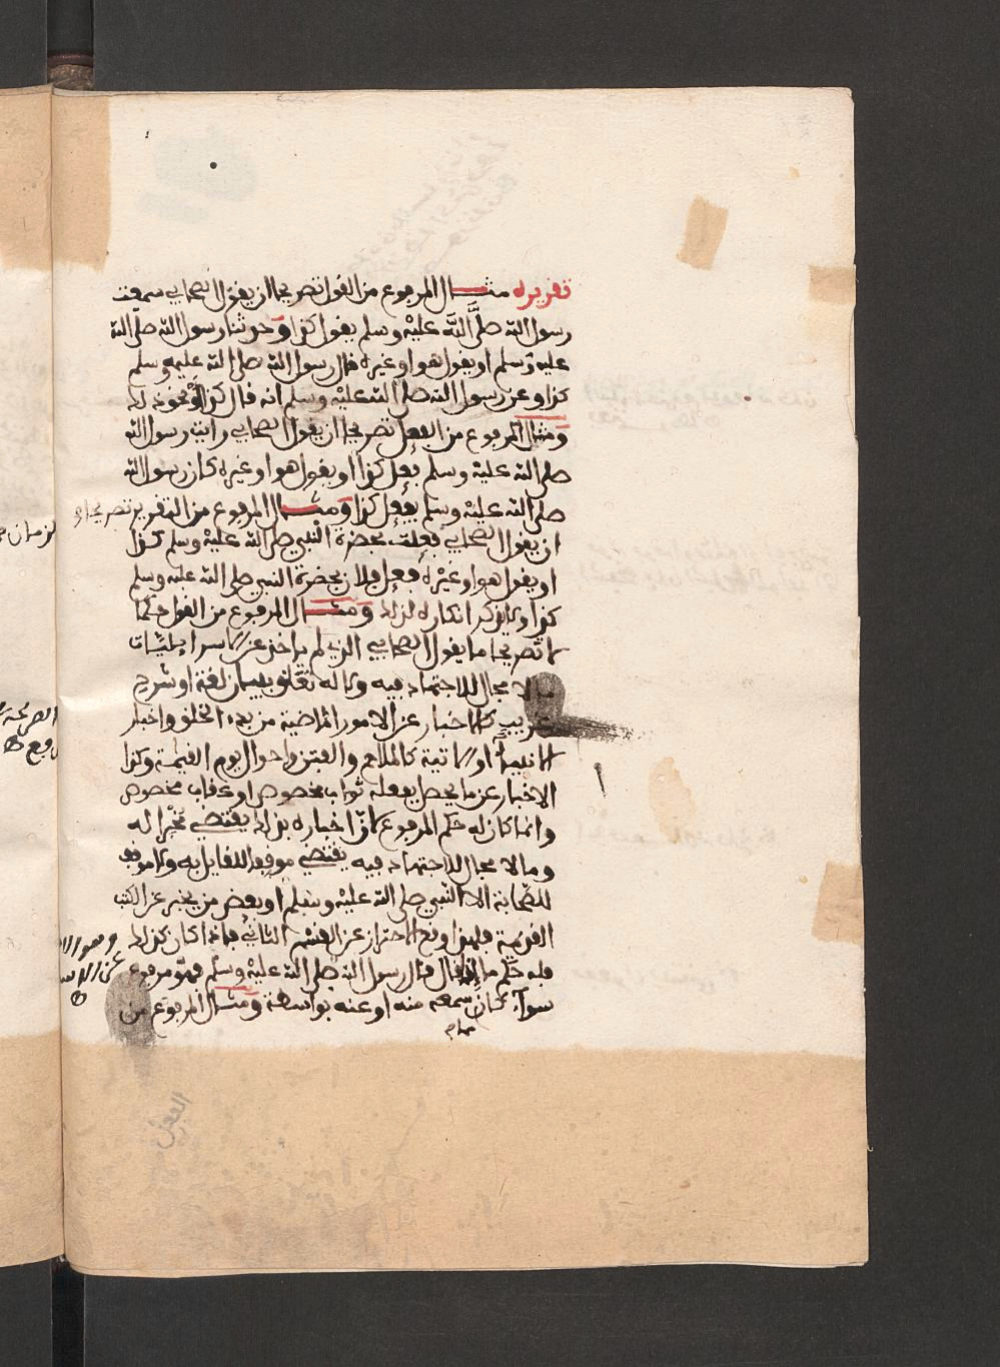 تقريره مثال المرفوع من القول تصريحا ان يقول الصحابي سمعت
رسول الله صلى الله عليه وسلم يقول كذا وحدثنا رسول الله صلى الله
عليه وسلم او يقول هو او غيره قال رسول الله صلى الله عليه وسلم
كذا وعن رسول الله صلى الله عليه وسلم انه قال كذا ونحو ذلك
ومثال المرفوع من الفعل تصريحا ان يقول الصحابي رايت رسول الله
صلى الله عليه وسلم يفعل كذا او يقول هو او غيره كان رسول الله
صلى الله عليه وسلم يفعل كذا ومثال المرفوع من التقرير تصريحا
ان يقول الصحابي فعلت بحضرة النبي صلى الله عليه وسلم كذا
او يقول هو او غيره فعل فلان بحضرة النبي صلى الله عليه وسلم
كذا ولا يذكر انكاره لذلك ومثال المرفوع من القول حكما
لا تصريحا ما يقول الصحابي الذي لم ياخذ عن الاسراءيليات
ما لا مجال للاجتهاد فيه ولا له تعلق ببيان لغة او شرح
غريب كالاخبار عن الامور الماضية من بدء الخلق واخبار
الانبياء او الاتية كالملاحم والفتن واحوال يوم القيمة وكذا
الاخبار عن ما يحصل بفعله ثواب مخصوص او عقاب مخصوص
وانما كان له حكم المرفوع لان اخباره بذلك يقتضي مخبرا له
وما لا مجال للاجتهاد فيه يقتضي موقفا للقايل به ولا موقف
للصحابة الا النبي صلى الله عليه وسلم او بعض من يخبر عن الكتب
القديمة فلهذا وقع الاحتراز عن القسم الثاني فاذا كان كذلك
فله حكم ما لو قال قال رسول الله صلى الله عليه وسلم فهو مرفوع
سواء كان سمعه منه او عنه بواسطة ومثال المرفوع من